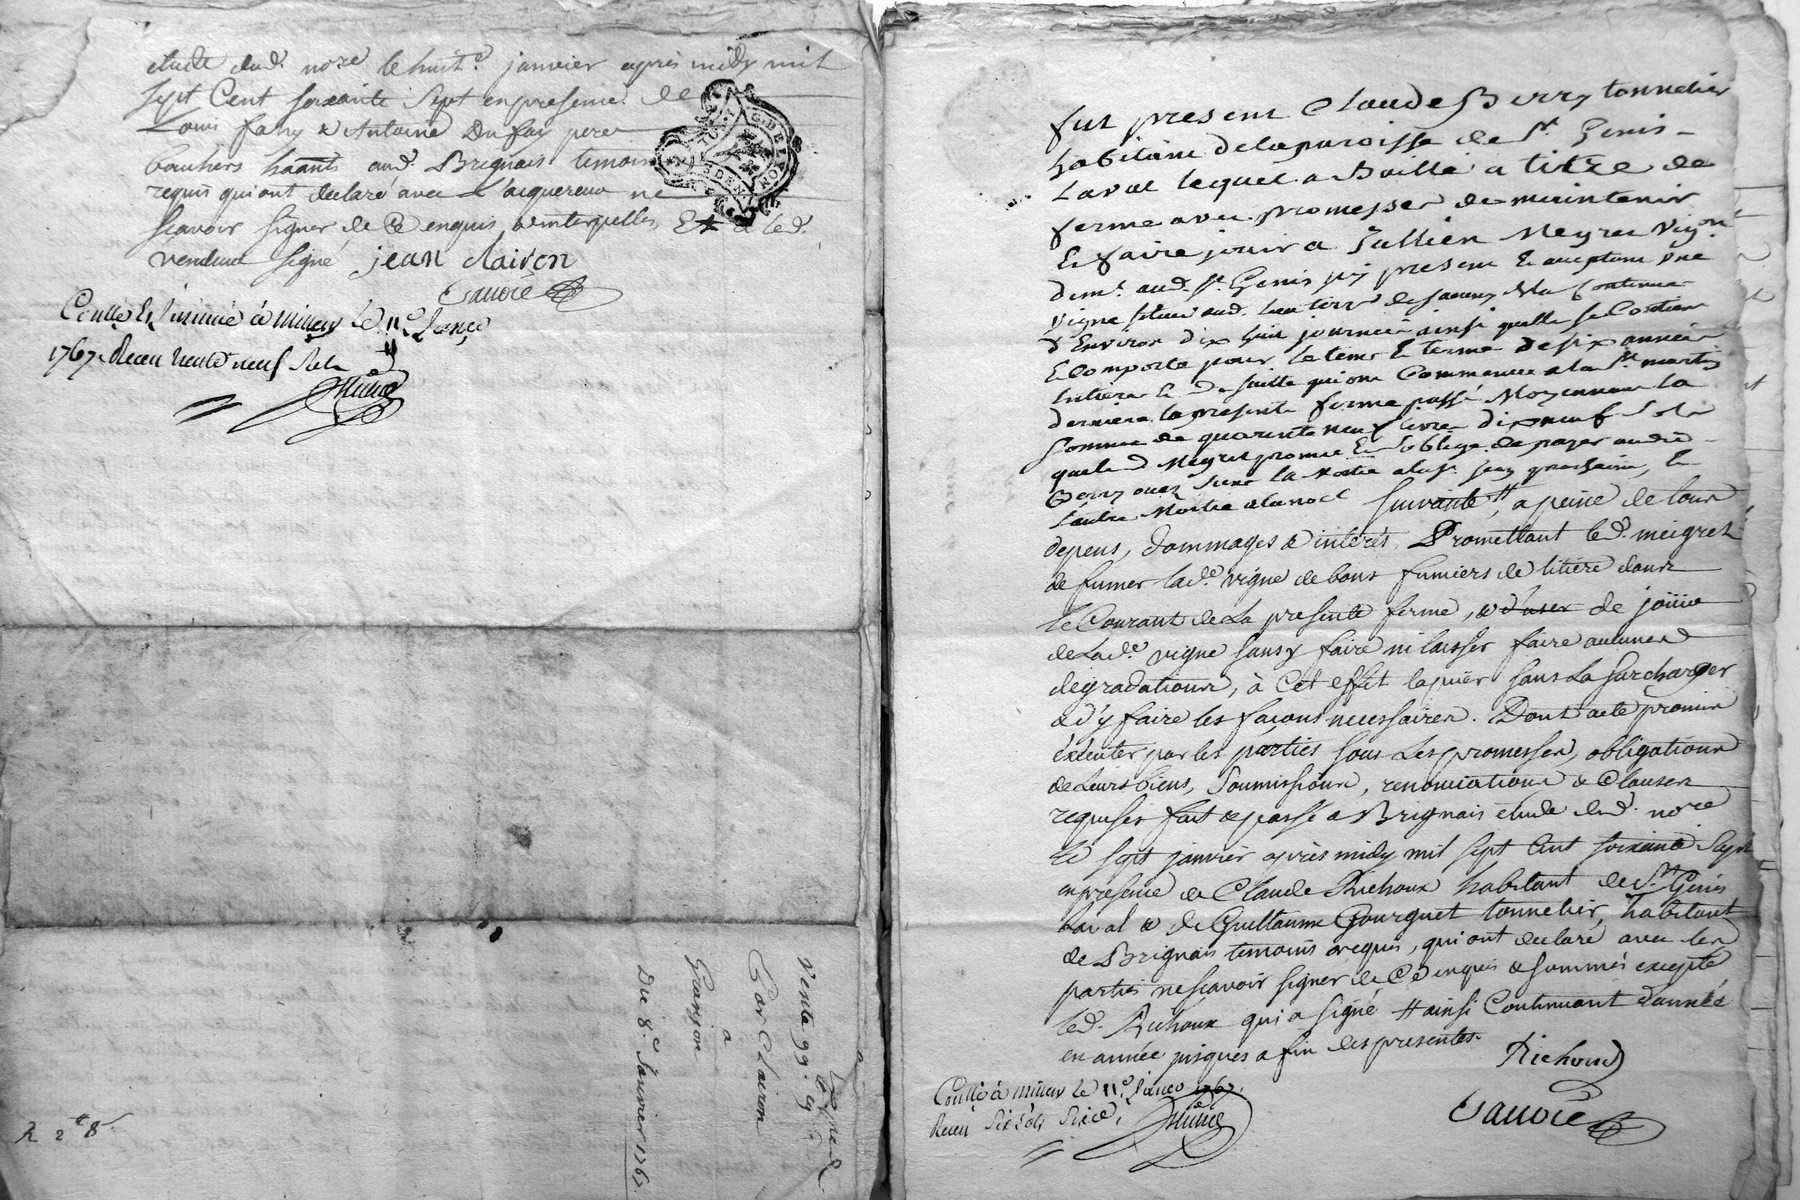 etude dud. nore le huit.e janvier après midy mil
sept Cent soixante sept en presence de
Louis fahy & Antoine Dufay pere
habts aud. Brignais temoins
requis qui ont declaré avec L'acquereur ne
scavoir signer de Ce enquis & interpellés Et a led.
vendeur signé jean clairon
Sauoie
Conllé & insinué à Millery le 11e Janer
1767. Receu trente neuf sols
GENER DE LYON
Vente
par Clairon
a
Granjon
Du 8e Janvier 1767
R 2te 8s
fut present Claude Berry tonnelier
habitant de la paroisse de St Genis
Laval lequel a Baillé a titre de
ferme avec promesse de maintenir
& faire jouir a Jullien Meyret vigon
demt. aud. St Genis icy present & acceptant une
vigne située aud. lieu terre de de la Contenue
d'Environ dix huit journées ainsi quelle se Contien
& Comporte pour le tems & terme de six années
Entieres & de suitte qui ont Commencé a la St martin
derniere la presente ferme passé Moyennant la
somme de quarente neuf livres dix neuf sols
que led Meyret promet & s'oblige de payer audit
Berry avec sure la Moitié a la St jean prochaine, &
l'autre Moitié a la noel suivante #, a peine de tous
depens, dommages & interés. Promettant led. meigret
de fumer lade. vigne de bons fumiers de litiere dans
le Courant de La presente ferme, & d'user de jouir
de Lade. vigne sans y faire ni laisser faire aucunes
degradations, à Cet effet la puier sans La surcharger
& d'y faire les façons necessaires. Dont acte promis
éxécuter par les parties sous Les promesses, obligations
de Leurs biens, soumissions, renonciations & Clauses
requises fait & passé a Brignais etude dud. nore
le sept janvier après midy mil sept Cent soixante sept
en presence de Claude Richoux habitant de St Genis
Laval & de Guillaume Gourguet tonnelier, habitant
de Brignais temoins requis, qui ont declaré avec les
parties ne scavoir signer de Ce enquis & sommés excepté
led. Richoux qui a signé # ainsi Continuant d'année
en année jusques a fin des presentes.
Richoud
Sauoie
Conllé à Millery le 11e Janer 1767.
Receu six sols six de.